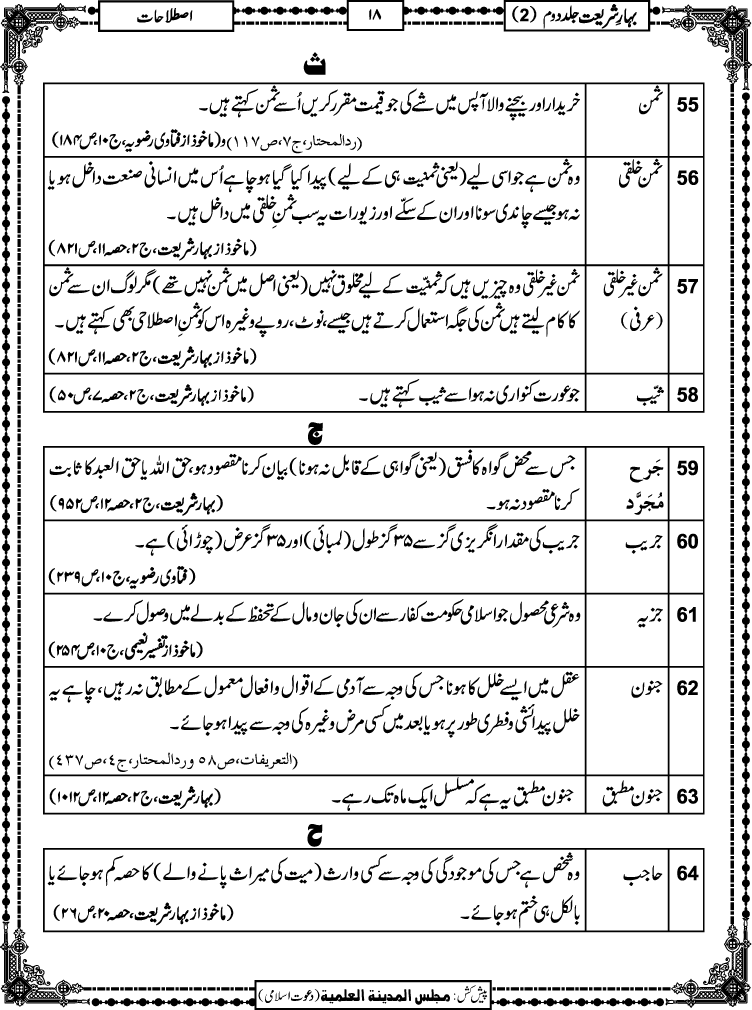 بہارِ شریعت جلد دوم (2)
۱۸
اصطلاحات
ث
55 ثمن خریدار اور بیچنے والا آپس میں شے کی جو قیمت مقرر کریں اُسے ثمن کہتے ہیں۔
(ردالمحتار، ج۷، ص۱۱۷) و (ماخوذ از فتاوی رضویہ، ج۱۰، ص۱۸۴)
56 ثمن خلقی وہ ثمن ہے جو اسی لیے (یعنی ثمنیت ہی کے لیے) پیدا کیا گیا ہو چاہے اُس میں انسانی صنعت داخل ہو یا
نہ ہو جیسے چاندی سونا اور ان کے سکّے اور زیورات یہ سب ثمنِ خلقی میں داخل ہیں۔
(ماخوذ از بہار شریعت، ج۲، حصہ۱۱، ص۸۲۱)
57 ثمن غیر خلقی ثمن غیر خلقی وہ چیزیں ہیں کہ ثمنیّت کے لیے مخلوق نہیں (یعنی اصل میں ثمن نہیں تھے) مگر لوگ ان سے ثمن
(عرفی) کا کام لیتے ہیں ثمن کی جگہ استعمال کرتے ہیں جیسے، نوٹ، روپے وغیرہ اس کو ثمنِ اصطلاحی بھی کہتے ہیں۔
(ماخوذ از بہار شریعت، ج۲، حصہ۱۱، ص۸۲۱)
58 ثیّب جو عورت کنواری نہ ہو اسے ثیب کہتے ہیں۔ (ماخوذ از بہار شریعت، ج۲، حصہ۷، ص۵۰)
ج
59 جَرح جس سے محض گواہ کا فسق (یعنی گواہی کے قابل نہ ہونا) بیان کرنا مقصود ہو، حق اللہ یا حق العبد کا ثابت
مُجَرَّد کرنا مقصود نہ ہو۔ (بہار شریعت، ج۲، حصہ۱۲، ص۹۵۲)
60 جریب جریب کی مقدار انگریزی گز سے ۳۵ گز طول (لمبائی) اور ۳۵ گز عرض (چوڑائی) ہے۔
(فتاوی رضویہ، ج۱۰، ص۲۳۹)
61 جزیہ وہ شرعی محصول جو اسلامی حکومت کفار سے ان کی جان و مال کے تحفظ کے بدلے میں وصول کرے۔
(ماخوذ از تفسیر نعیمی، ج۱۰، ص۲۵۴)
62 جنون عقل میں ایسے خلل کا ہونا جس کی وجہ سے آدمی کے اقوال و افعال معمول کے مطابق نہ رہیں، چاہے یہ
خلل پیدائشی و فطری طور پر ہو یا بعد میں کسی مرض وغیرہ کی وجہ سے پیدا ہو جائے۔
(التعریفات، ص۵۸ و ردالمحتار، ج٤، ص٤٣٧)
63 جنون مطبق جنون مطبق یہ ہے کہ مسلسل ایک ماہ تک رہے۔ (بہار شریعت، ج۲، حصہ۱۲، ص۱۰۱۲)
ح
64 حاجب وہ شخص ہے جس کی موجودگی کی وجہ سے کسی وارث (میت کی میراث پانے والے) کا حصہ کم ہو جائے یا
بالکل ہی ختم ہو جائے۔ (ماخوذ از بہار شریعت، حصہ۲۰، ص۲۶)
پیش کش: مجلس المدینۃ العلمیۃ (دعوت اسلامی)